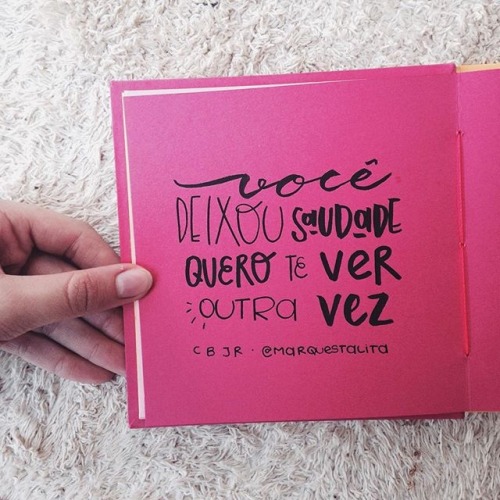 você
DEIXOU SAUDADE
QUERO TE VER
OUTRA VEZ
C B J R · @MARQUESTALITA